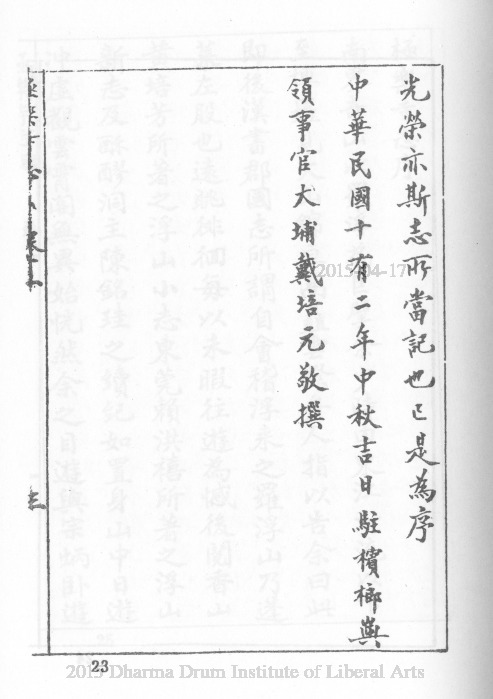 光榮亦斯志所當記也已是為序
中華民國十有二年中秋吉日駐檳榔嶼
領事官大埔戴培元敬撰
極樂寺志
23
2015-04-17
2015 Dharma Drum Institute of Liberal Arts